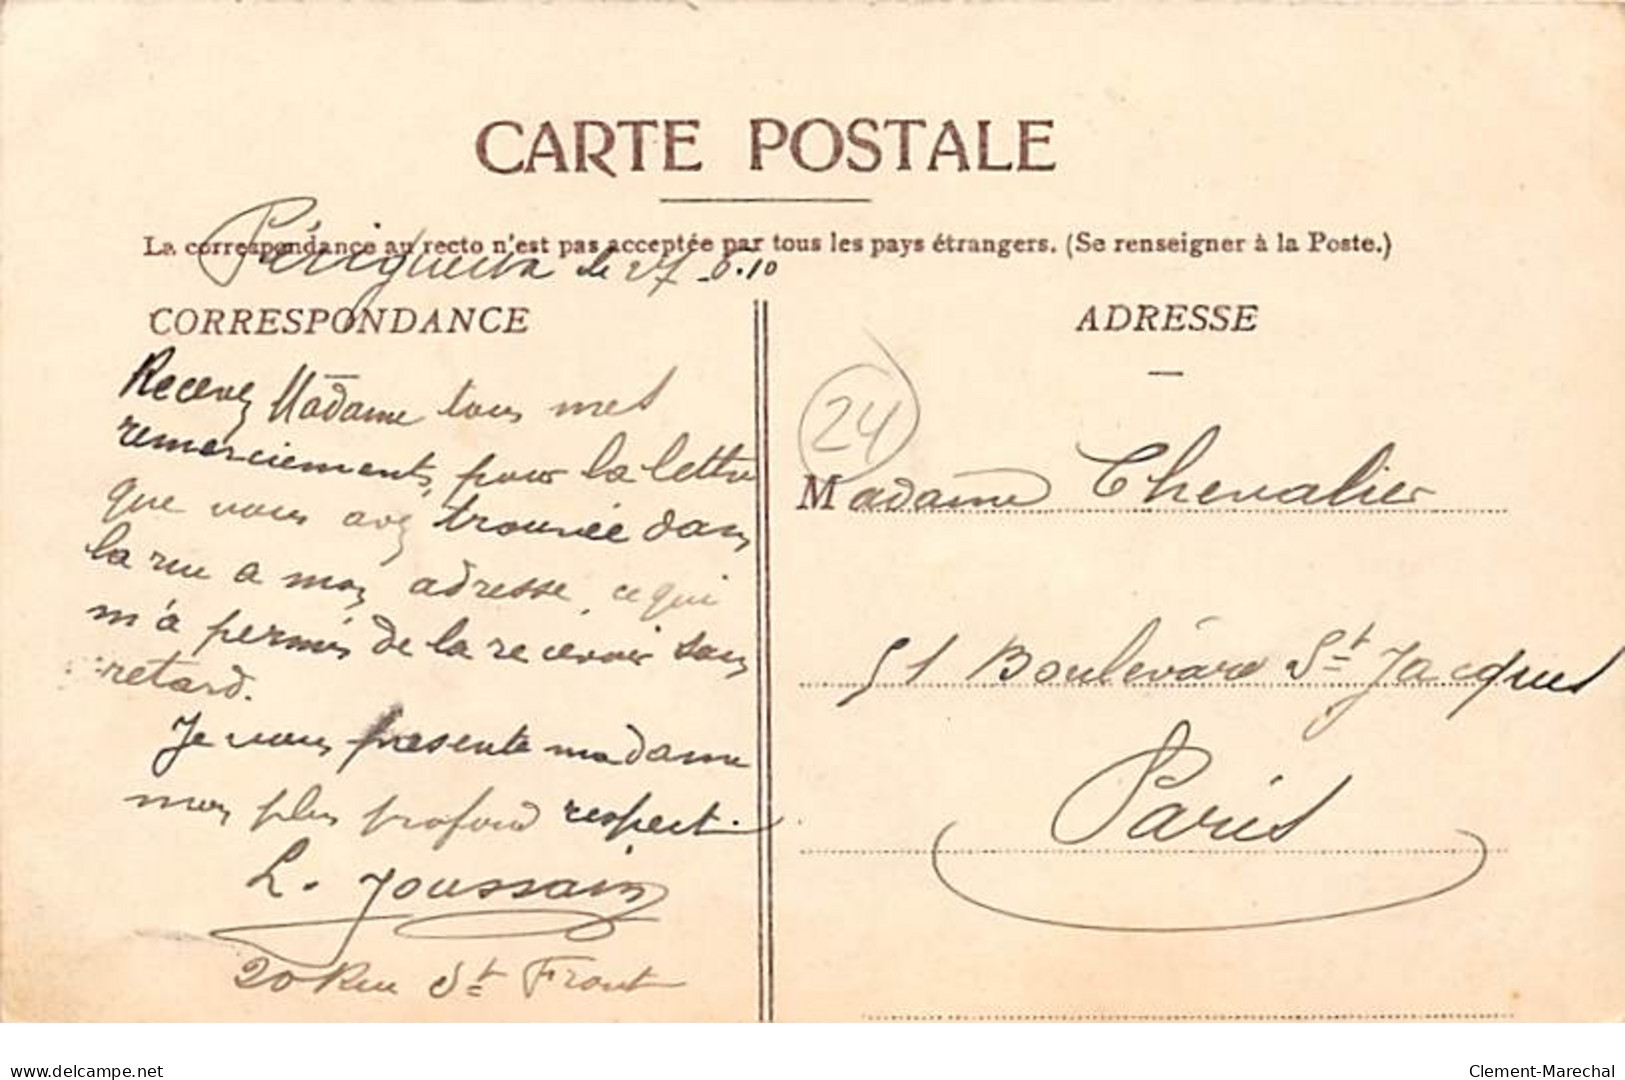 CARTE POSTALE
La correspondance au recto n'est pas acceptée par tous les pays étrangers. (Se renseigner à la Poste.)
Périgueux le 27-6-10
CORRESPONDANCE
Recevez Madame tous mes
remerciements, pour la lettre
que vous avez trouvée dans
la rue a mon adresse, ce qui
m'a permis de la recevoir sans
retard.
Je vous présente madame
mon plus profond respect.
L. Joussain
20 Rue St Front
ADRESSE
24
Madame Chevalier
51 Boulevard St Jacques
Paris
delcampe.net
Clement-Marechal